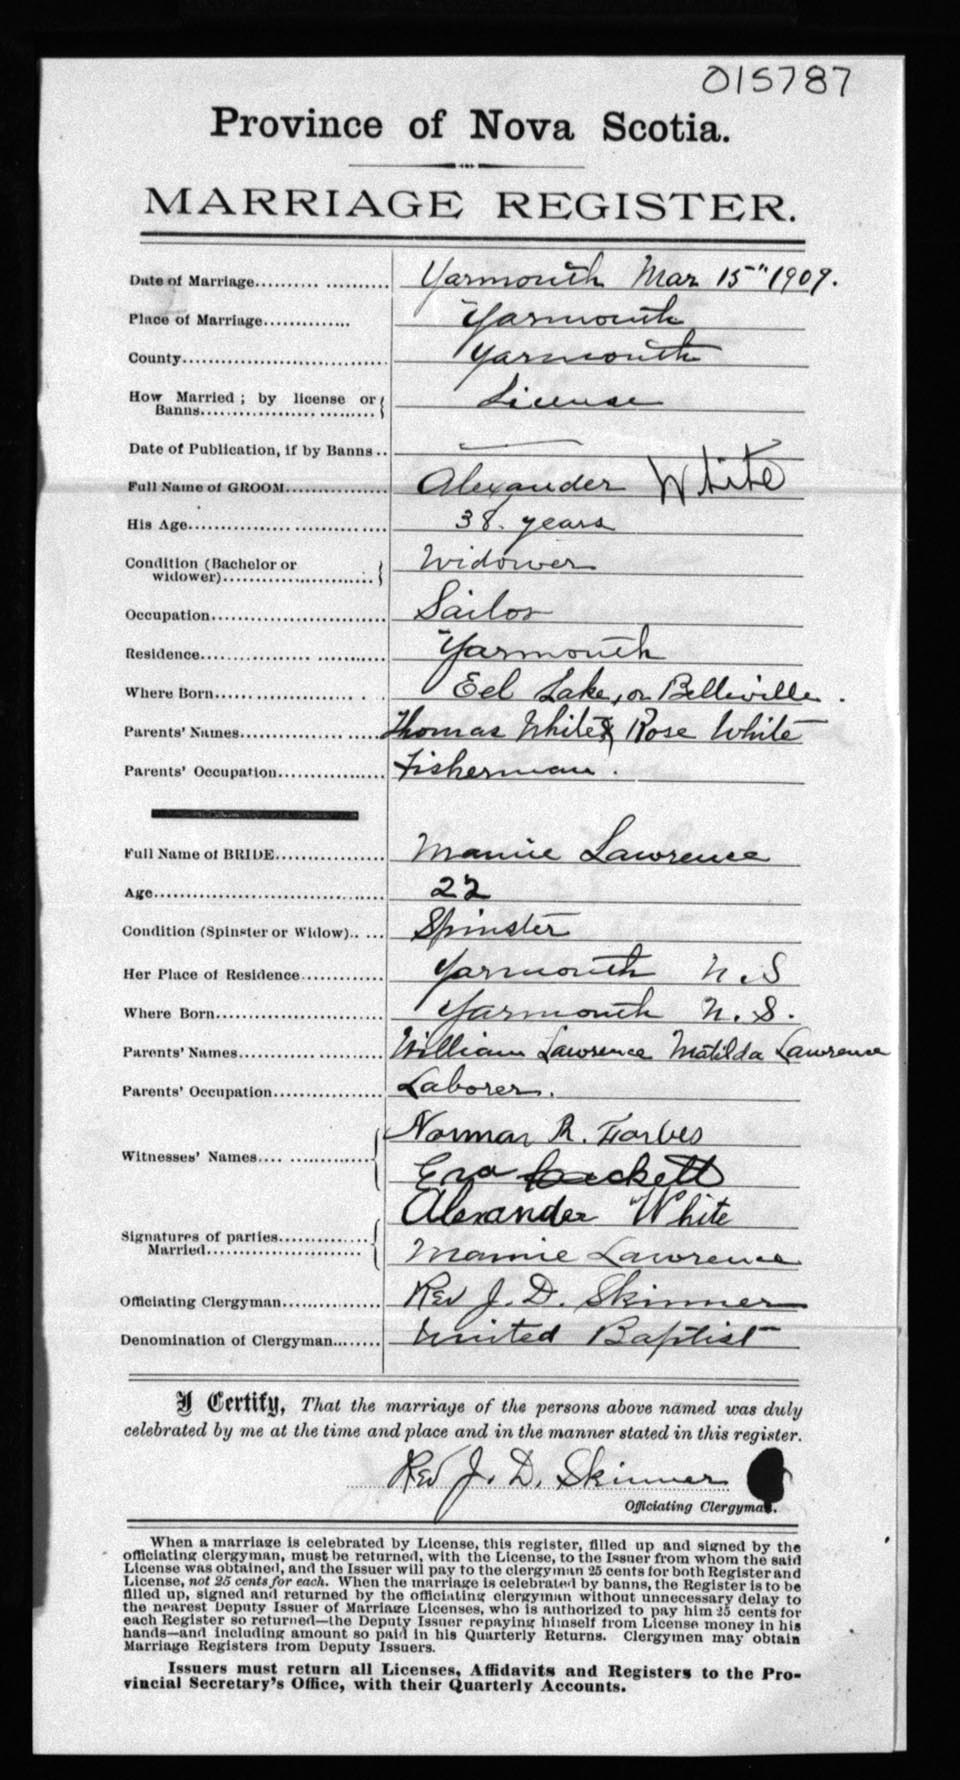 015787
Province of Nova Scotia.
MARRIAGE REGISTER.
Date of Marriage.......... .......... Yarmouth Mar 15" 1909.
Place of Marriage............. Yarmouth
County................................. Yarmouth
How Married; by license or Banns........................ License
Date of Publication, if by Banns.. —
Full Name of GROOM................ Alexander White
His Age.................................. 38. years
Condition (Bachelor or widower)......................... Widower
Occupation............................ Sailor
Residence.............................. Yarmouth
Where Born........................... Eel Lake, or Belleville.
Parents' Names....................... Thomas White & Rose White
Parents' Occupation................. Fisherman.
Full Name of BRIDE................. Mamie Lawrence
Age....................................... 22
Condition (Spinster or Widow)..... Spinster
Her Place of Residence............. Yarmouth N.S
Where Born............................ Yarmouth N.S.
Parents' Names....................... William Lawrence Matilda Lawrence
Parents' Occupation................. Laborer.
Witnesses' Names.... ............... Norman R. Forbes
Hackett
Signatures of parties Married........................ Alexander White
Mamie Lawrence
Officiating Clergyman............... Rev J. D. Skinner
Denomination of Clergyman........ United Baptist
I Certify, That the marriage of the persons above named was duly
celebrated by me at the time and place and in the manner stated in this register.
Rev J. D. Skinner
Officiating Clergyman.
When a marriage is celebrated by License, this register, filled up and signed by the
officiating clergyman, must be returned, with the License, to the Issuer from whom the said
License was obtained, and the Issuer will pay to the clergyman 25 cents for both Register and
License, not 25 cents for each. When the marriage is celebrated by banns, the Register is to be
filled up, signed and returned by the officiating clergyman without unnecessary delay to
the nearest Deputy Issuer of Marriage Licenses, who is authorized to pay him 25 cents for
each Register so returned—the Deputy Issuer repaying himself from License money in his
hands—and including amount so paid in his Quarterly Returns. Clergymen may obtain
Marriage Registers from Deputy Issuers.
Issuers must return all Licenses, Affidavits and Registers to the Pro-
vincial Secretary's Office, with their Quarterly Accounts.